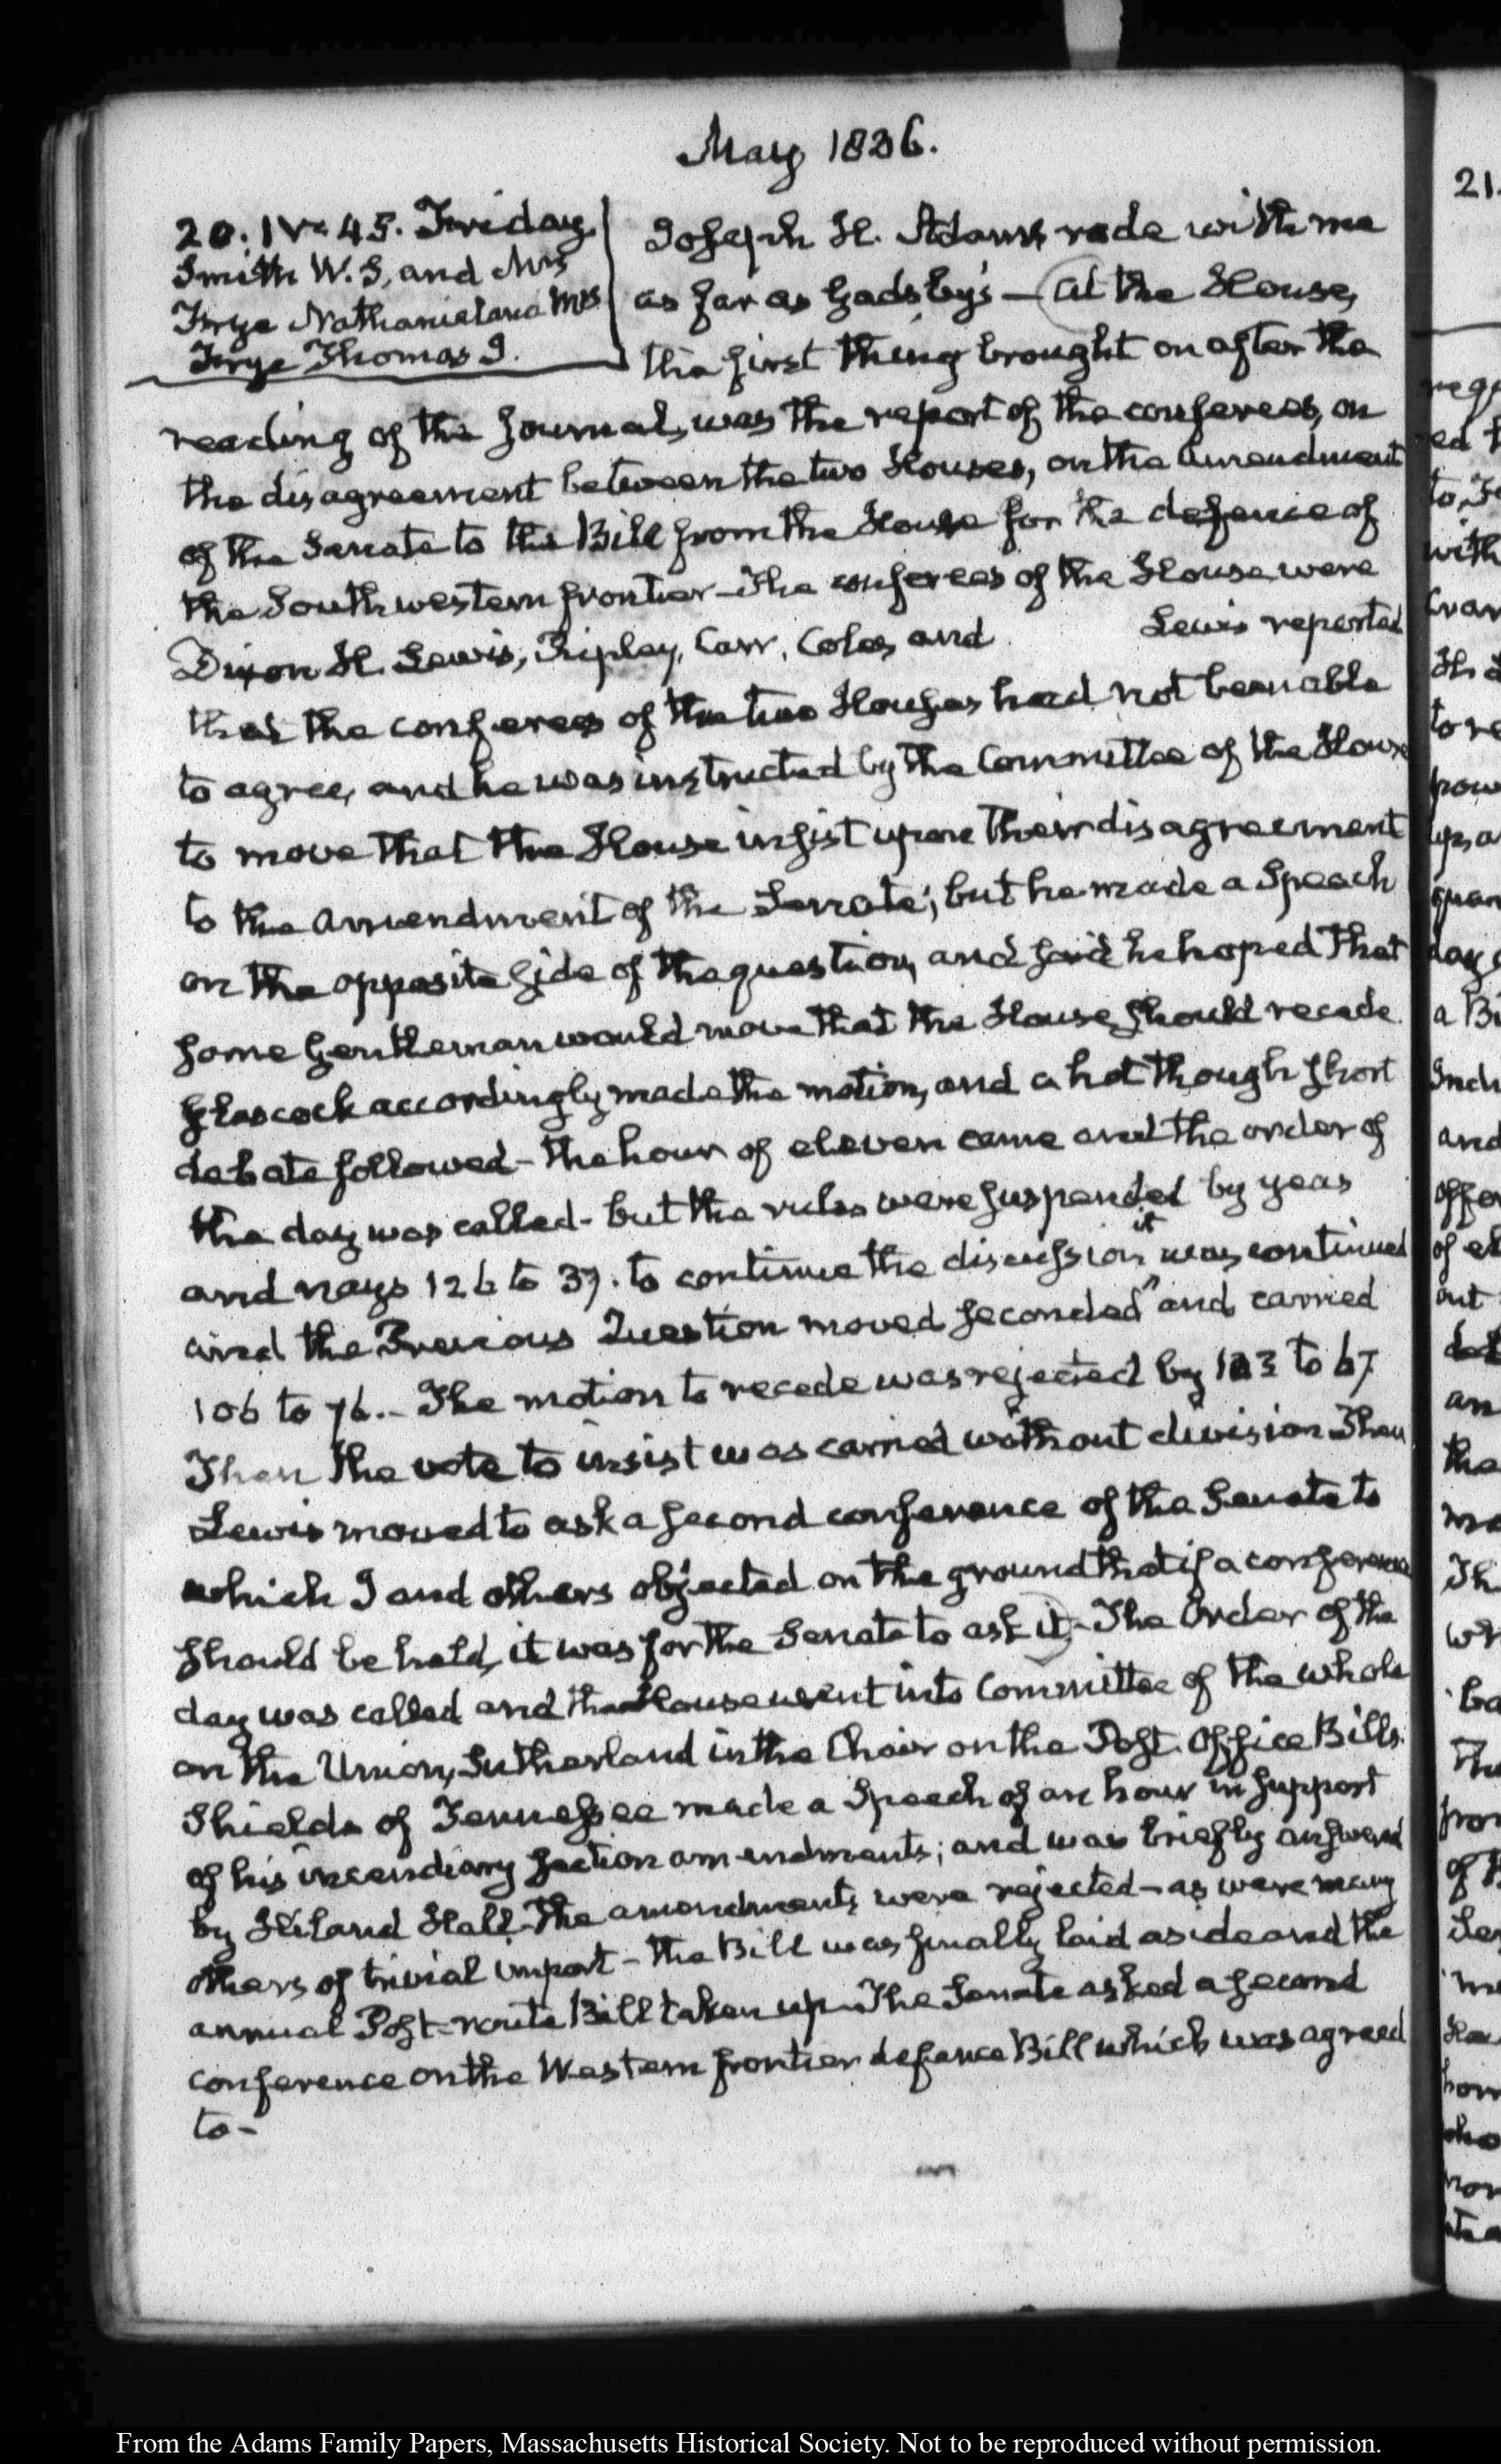 May 1836.
20. IV. 45. Friday.
Smith W. S, and Mrs
Frye Nathaniel and Mrs
Frye Thomas I.
Joseph H. Adams rode with me
as far as Gadsby's — At the House,
the first thing brought on after the
reading of the Journal, was the report of the conferees, on
the disagreement between the two Houses, on the amendment
of the Senate to the Bill from the House for the defence of
the Southwestern frontier — The conferees of the House were
Dixon H. Lewis, Ripley, Carr, Coles, and Lewis reported
that the conferees of the two Houses had not been able
to agree, and he was instructed by the Committee of the House
to move that the House insist upon their disagreement
to the amendment of the Senate; but he made a Speech
on the opposite side of the question, and said he hoped that
some Gentleman would move that the House should recede.
Glascock accordingly made the motion, and a hot though short
debate followed - the hour of eleven came and the order of
the day was called - but the rules were suspended by yeas
and nays 126 to 37. to continue the discussion it was continued
and the Previous Question moved seconded and carried
106 to 76. - The motion to recede was rejected by 123 to 67
Then the vote to insist was carried without division Then
Lewis moved to ask a second conference of the Senate to
which I and others objected on the ground that if a conference
should be held, it was for the Senate to ask it - The Order of the
day was called and the House went into Committee of the whole
on the Union, Sutherland in the Chair on the Post Office Bills.
Shields of Tennessee made a Speech of an hour in support
of his incendiary section amendments; and was briefly answered
by Hiland Hall - The amendments were rejected - as were many
others of trivial import - the Bill was finally laid aside and the
annual Post-route Bill taken up - The Senate asked a second
conference on the Western frontier defence Bill which was agreed
to -
21.
From the Adams Family Papers, Massachusetts Historical Society. Not to be reproduced without permission.